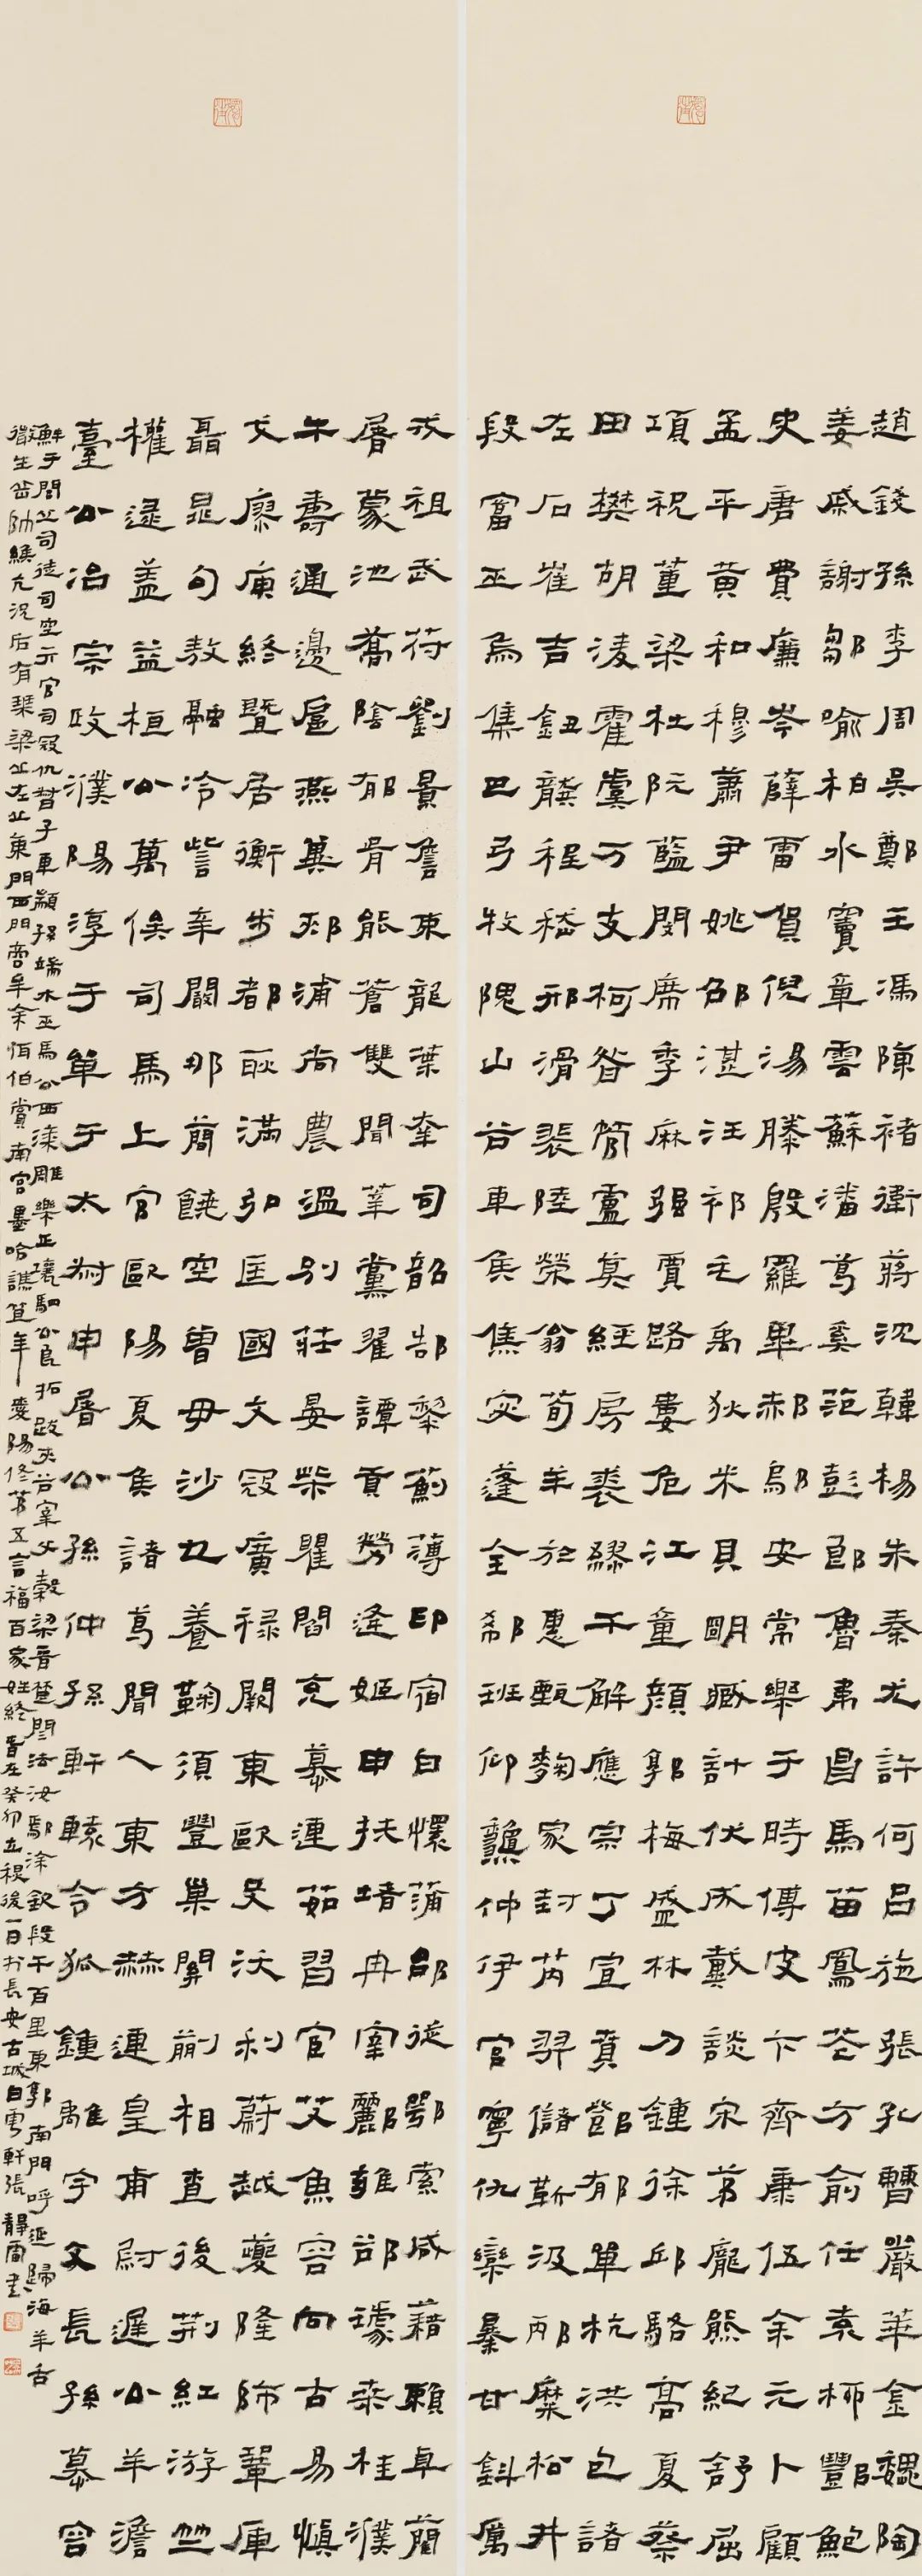 趙錢孫李周吳鄭王馮陳褚衛蔣沈韓楊朱秦尤許何呂施張孔曹嚴華金魏陶
姜戚謝鄒喻柏水竇章雲蘇潘葛奚范彭郎魯韋昌馬苗鳳花方俞任袁柳酆鮑
史唐費廉岑薛雷賀倪湯滕殷羅畢郝鄔安常樂于時傅皮卞齊康伍余元卜顧
孟平黃和穆蕭尹姚邵湛汪祁毛禹狄米貝明臧計伏成戴談宋茅龐熊紀舒屈
項祝董梁杜阮藍閔席季麻强賈路婁危江童顏郭梅盛林刁鍾徐邱駱高夏蔡
田樊胡凌霍虞万支柯昝管盧莫經房裘繆干解應宗丁宣賁鄧郁單杭洪包諸
左石崔吉鈕龔程嵇邢滑裴陸榮翁荀羊於惠甄麴家封芮羿儲靳汲邴糜松井
段富巫烏焦巴弓牧隗山谷車侯焦宓蓬全郗班仰龝仲伊宮寧仇欒暴甘鈄厲
戎祖武符劉景詹束龍葉幸司韶郜黎薊薄印宿白懷蒲邰從鄂索咸藉賴卓藺
屠蒙池喬陰郁胥能蒼雙聞莘黨翟譚貢勞逄姬申扶堵冉宰酈雍郤璩桑桂濮
牛壽通邊扈燕冀郟浦尚農溫別莊晏柴瞿閻充慕連茹習宦艾魚容向古易慎
戈廖庾終暨居衡步都耿滿弘匡國文寇廣祿闕東歐殳沃利蔚越夔隆師鞏厙
聶晁句敖融冷訾辛闞那簡饒空曾毋沙乜養鞠須豐巢關蒯相查後荊紅游竺
權逯盖益桓公萬俟司馬上官歐陽夏侯諸葛聞人東方赫連皇甫尉遲公羊澹
臺公冶宗政濮陽淳于單于太叔申屠公孫仲孫軒轅令狐鍾離宇文長孫慕容
鮮于閭丘司徒司空亓官司寇仉督子車顓孫端木巫馬公西漆雕樂正壤駟公良拓跋夾谷宰父穀梁晉楚閆法汝鄢涂欽段干百里東郭南門呼延歸海羊舌
微生岳帥緱亢況后有琴梁丘左丘東門西門商牟佘佴伯賞南宮墨哈譙笪年愛陽佟第五言福百家姓終 旹在癸卯立後一日於長安古城白雲軒張靜書